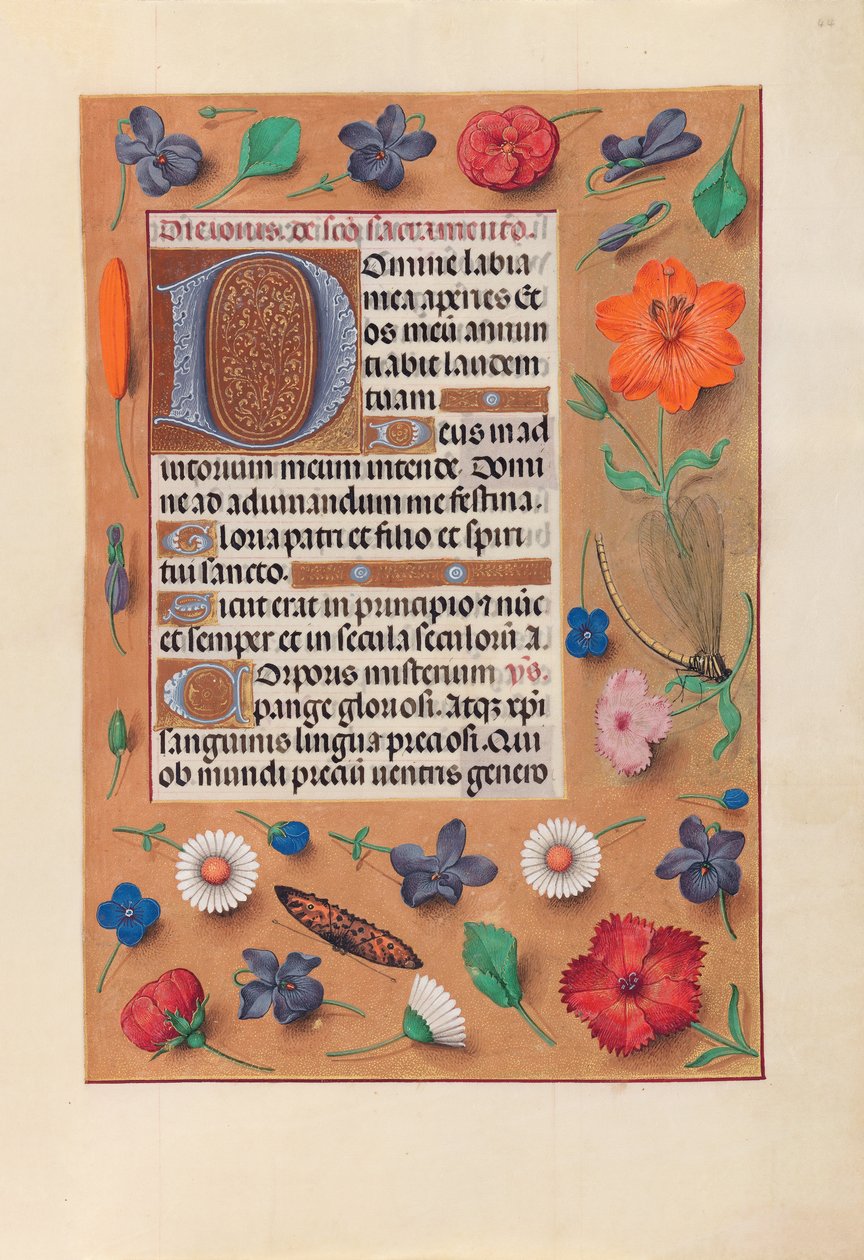 44
Die iovis. de scō sacramento.
Domine labia
mea aperies Et
os meū annun
tiabit laudem
tuam
Deus in ad
iutorium meum intende. Domi
ne ad adiuuandum me festina.
Gloria patri et filio et spiri
tui sancto.
Sicut erat in principio ⁊ nūc
et semper et in secula seculorū A.
Corporis misterium ẏs.
pange gloriosi. Atqꝫ xp̄i
sanguinis lingua preciosi. Qui
ob mundi preciū uentris genero